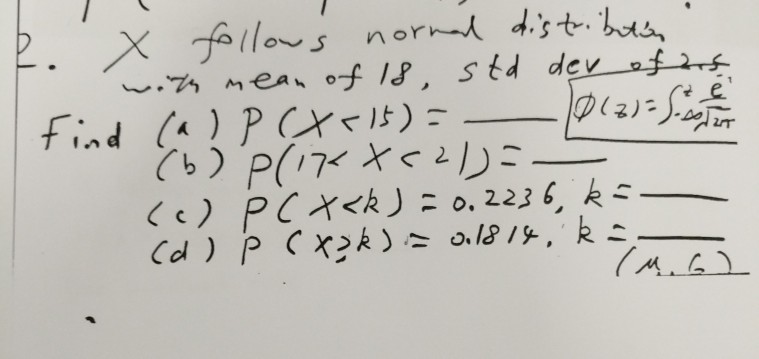 2. X follows normal distribution
with mean of 18, std dev of 2.5
Φ(z) = ∫
Find (a) P(X < 15) = ____
(b) P(17 < X < 21) = ____
(c) P(X < k) = 0.2236, k = ____
(d) P(X ≥ k) = 0.1814, k = ____